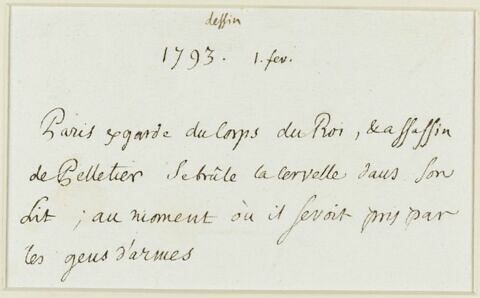 dessin
1793. 1. fev.
Paris exgarde du Corps du Roi, & assassin
de Pelletier se brûle la cervelle dans son
Lit ; au moment où il seroit pris par
les gens d'armes